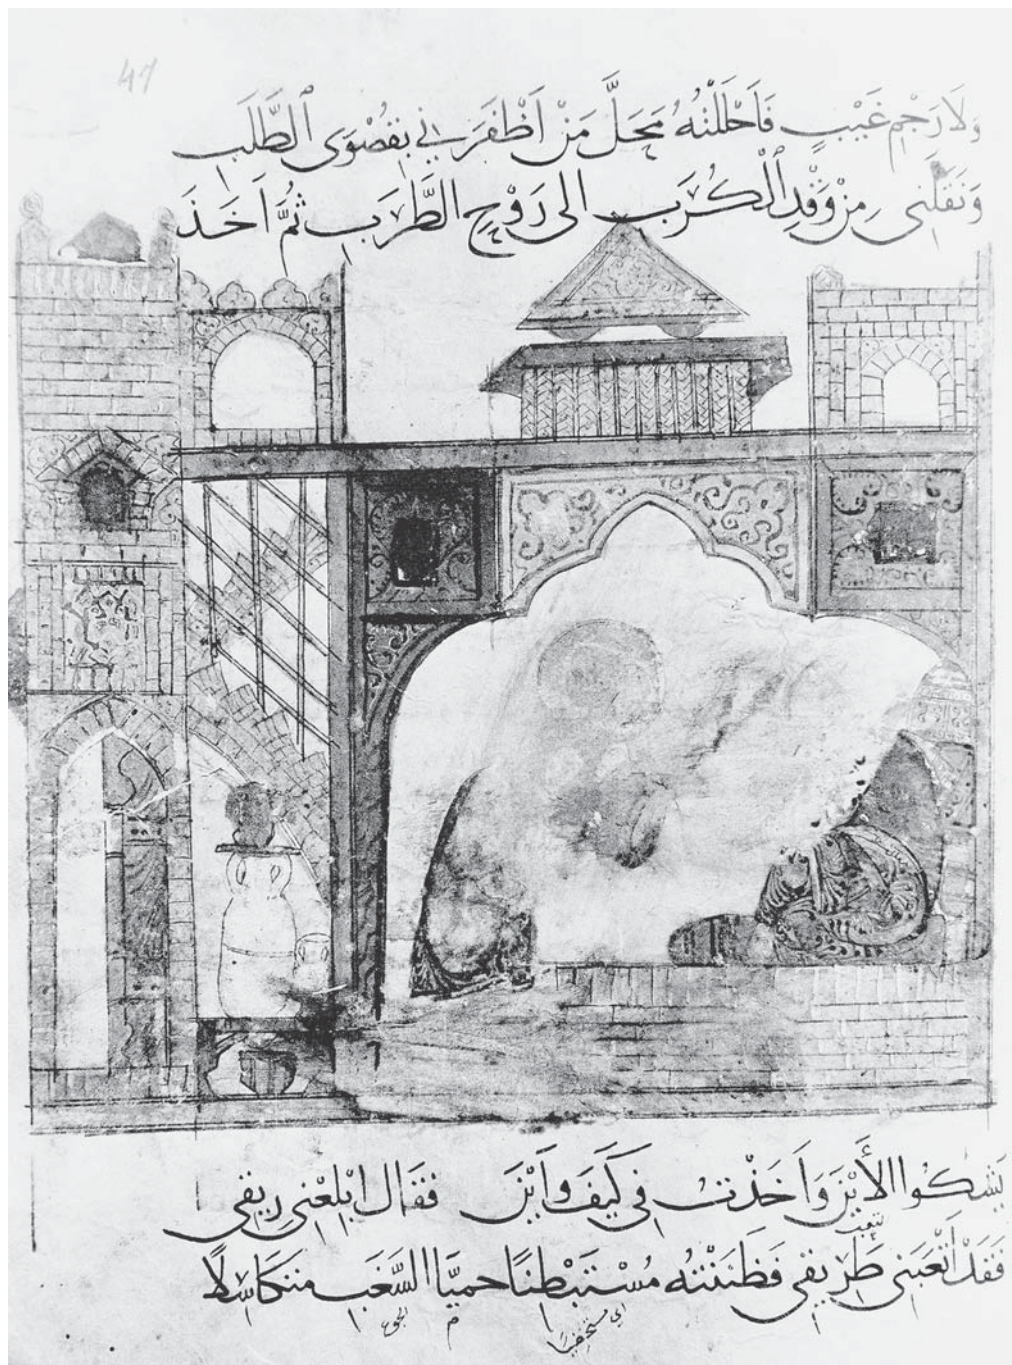 47
وَلَا رَجْمِ غَيْبٍ فَاَحْلَلْتُهُ مَحَلَّ مَنْ اَظْفَرَنِي بِقُصْوَى الطَّلَبِ
وَنَقَلَنِى مِنْ وَقْدِ الْكُرَبِ الى رَوْحِ الطَّرَبِ ثُمَّ اَخَذَ
يَشْكُوا الأَيْنَ وَاَخَذْتُ فِي كَيْفَ وَاَيْنَ فَقَالَ اَبْلِعْنِى رِيقِى
فَقَدْ اَتْعَبَنِى طَرِيقِى فَظَنَنْتُهُ مُسْتَبْطِنًا حميَّا السَّغَبِ متكَاسِلًا
الجوع